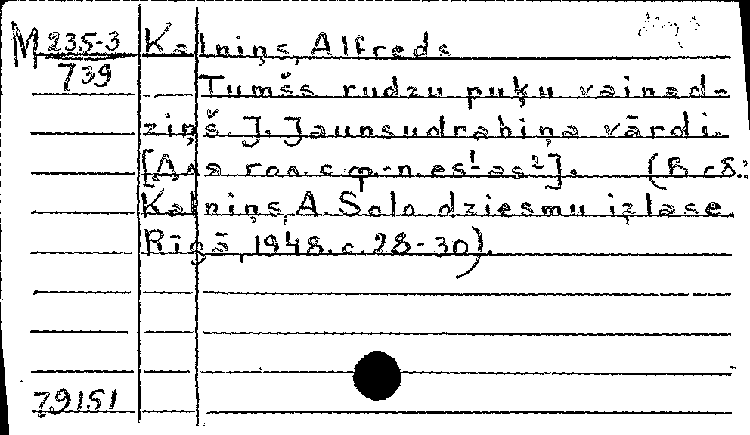 M 235-3 Kalniņs, Alfreds
739
Tumšs rudzu puķu vainad-
ziņš J. Jaunsudrabiņa vārdi.
[Для гол. с ф.-п. es¹-as²]. (В сб.:
Kalniņs, A. Solo dziesmu izlase.
Rīgā, 1948. с. 28-30).
79151